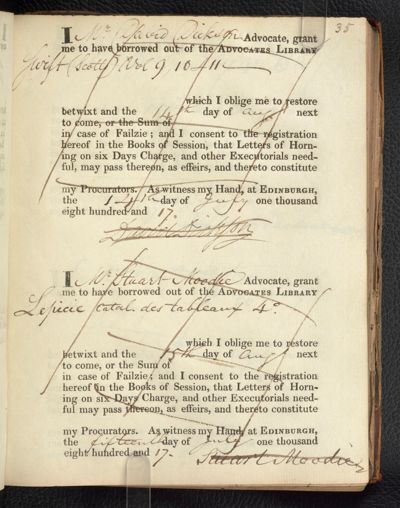 35
I Mr. David Dickson Advocate, grant
me to have borrowed out of the ADVOCATES LIBRARY
Swift (Scott) Vol 9 10 11
which I oblige me to restore
betwixt and the 14th day of Augt next
to come, or the Sum of
in case of Failzie; and I consent to the registration
hereof in the Books of Session, that Letters of Horn-
ing on six Days Charge, and other Executorials need-
ful, may pass thereon, as effeirs, and thereto constitute
my Procurators. As witness my Hand, at EDINBURGH,
the 14th day of July one thousand
eight hundred and 17.
David Dickson
I Mr. Stuart Moodie Advocate, grant
me to have borrowed out of the ADVOCATES LIBRARY
Lepicie Catal. des tableaux 4o.
which I oblige me to restore
betwixt and the 15th day of Augt next
to come, or the Sum of
in case of Failzie; and I consent to the registration
hereof in the Books of Session, that Letters of Horn-
ing on six Days Charge, and other Executorials need-
ful may pass thereon, as effeirs, and thereto constitute
my Procurators. As witness my Hand, at EDINBURGH,
the fifteenth day of July one thousand
eight hundred and 17.
Stuart Moodie